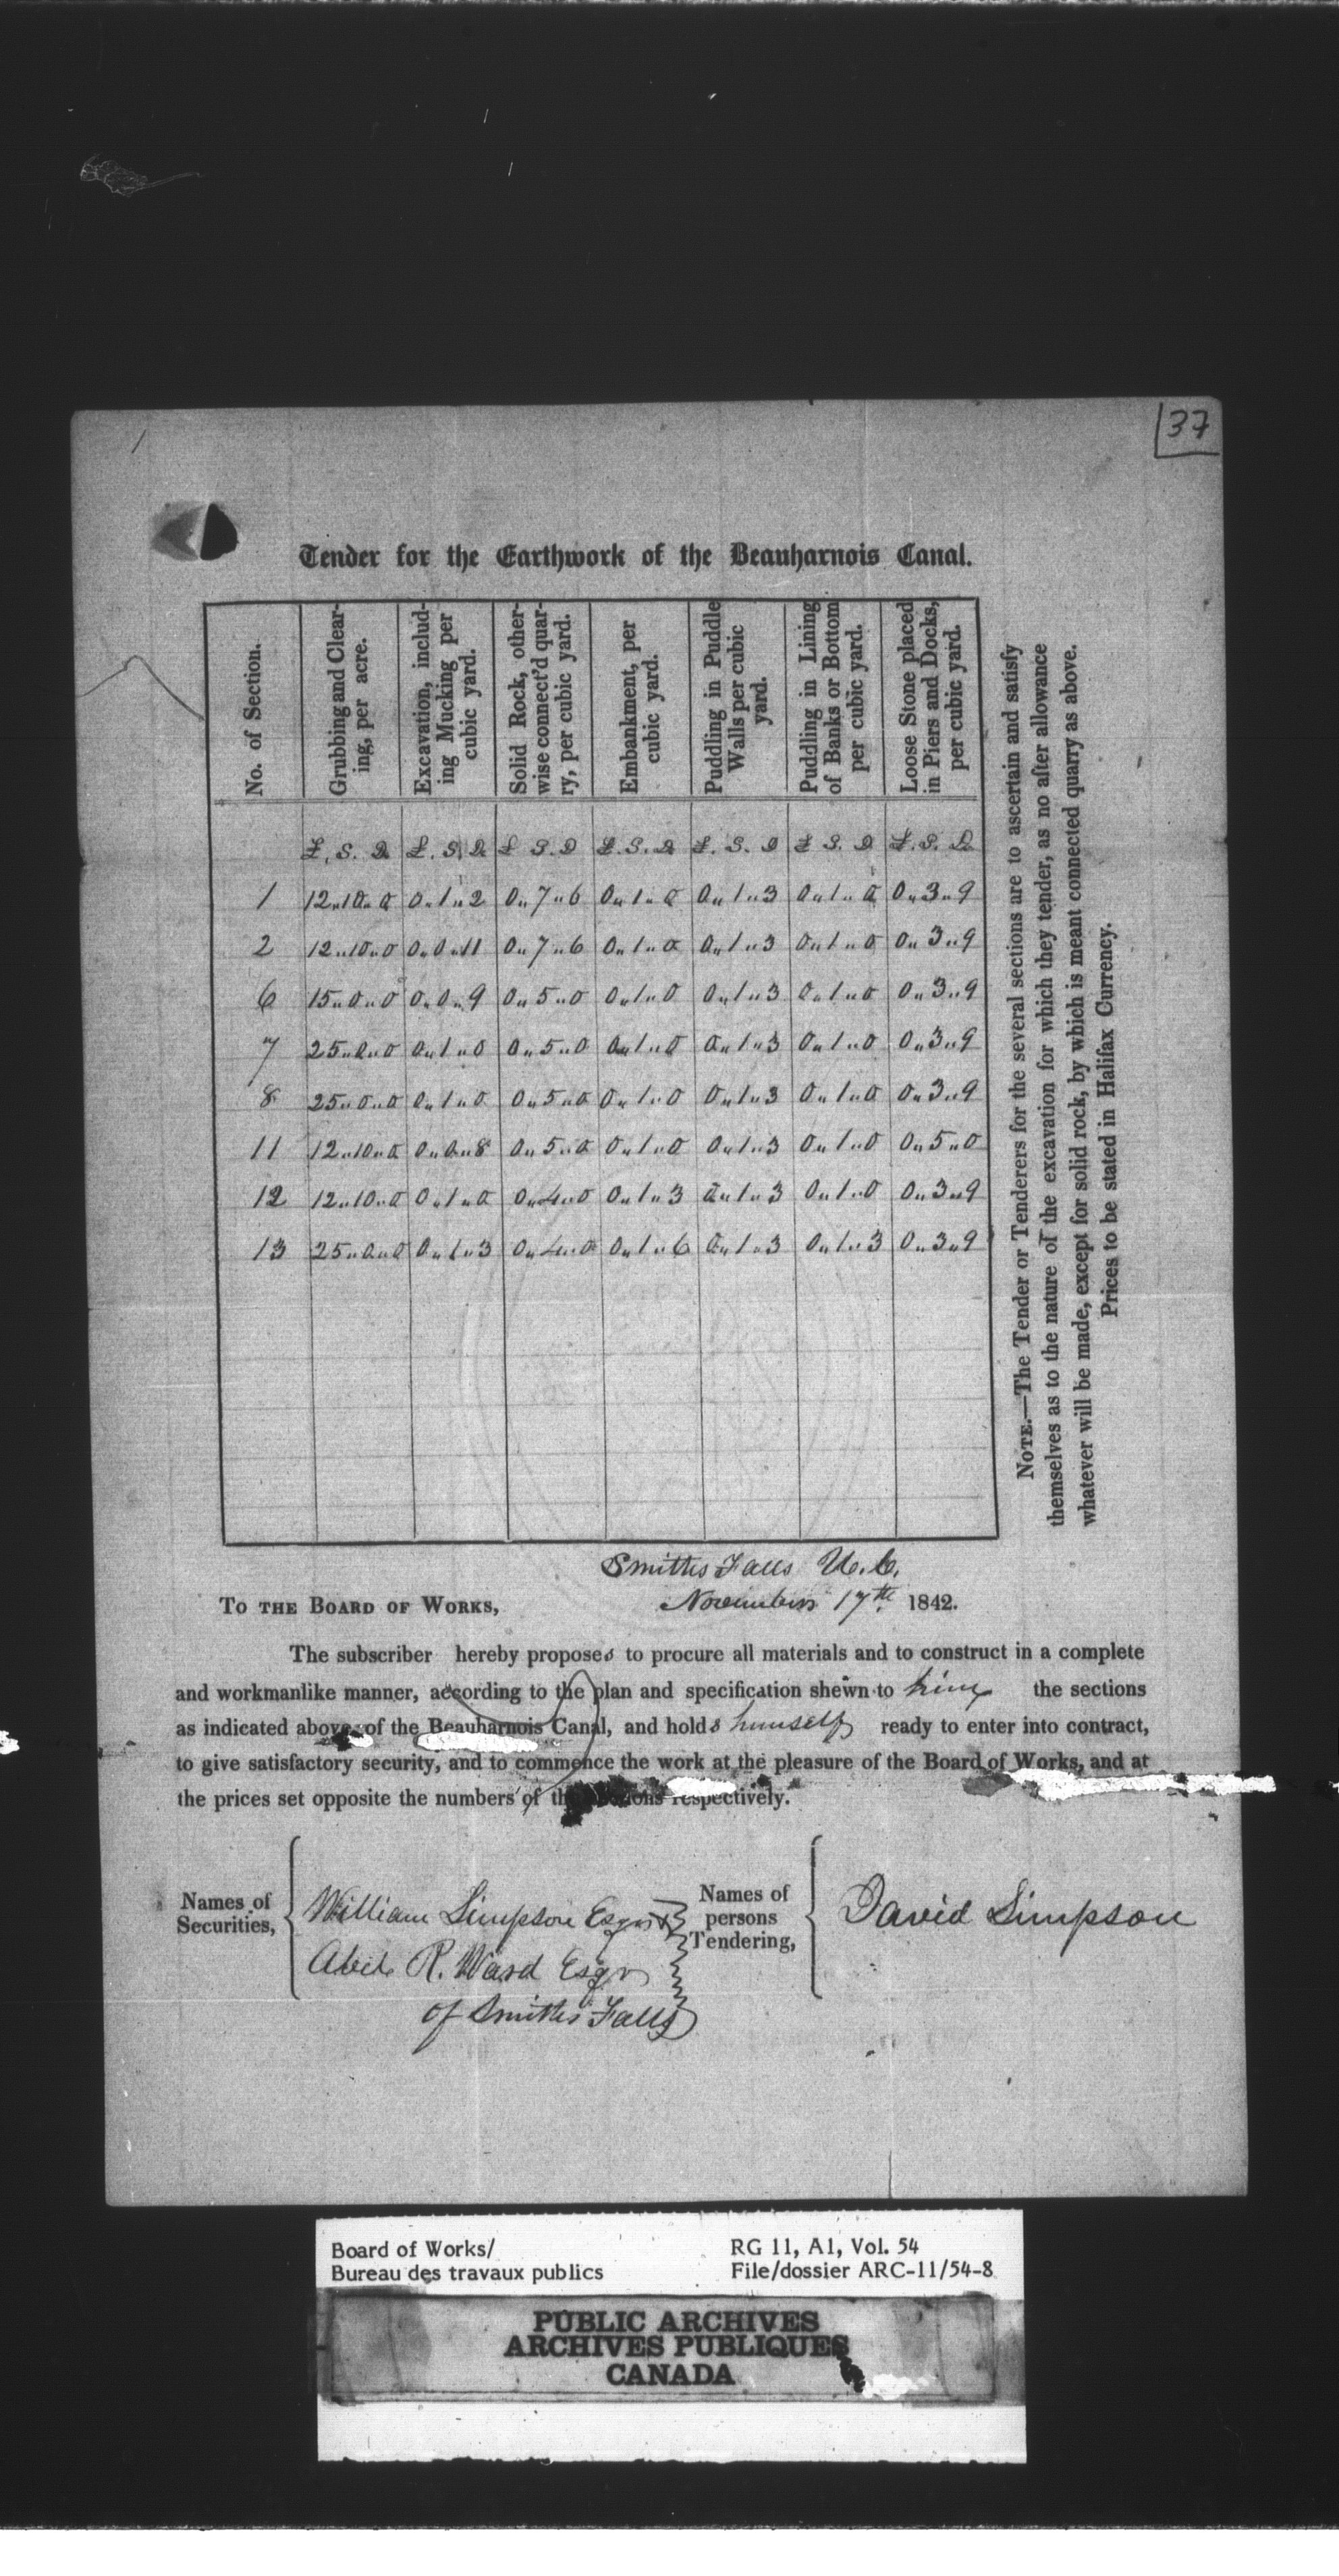 37
Tender for the Earthwork of the Beauharnois Canal.
No. of Section.
Grubbing and Clear-
ing, per acre.
Excavation, includ-
ing Mucking per
cubic yard.
Solid Rock, other-
wise connect'd quar-
ry, per cubic yard.
Embankment, per
cubic yard.
Puddling in Puddle
Walls per cubic
yard.
Puddling in Lining
of Banks or Bottom
per cubic yard.
Loose Stone placed
in Piers and Docks,
per cubic yard.
£. S. D £. S. D £ S. D £. S. D £. S. D £ S. D £. S. D
1 12"10"0 0"1"2 0"7"6 0"1"0 0"1"3 0"1"0 0"3"9
2 12"10"0 0"0"11 0"7"6 0"1"0 0"1"3 0"1"0 0"3"9
6 15"0"0 0"0"9 0"5"0 0"1"0 0"1"3 0"1"0 0"3"9
7 25"0"0 0"1"0 0"5"0 0"1"0 0"1"3 0"1"0 0"3"9
8 25"0"0 0"1"0 0"5"0 0"1"0 0"1"3 0"1"0 0"3"9
11 12"10"0 0"0"8 0"5"0 0"1"0 0"1"3 0"1"0 0"5"0
12 12"10"0 0"1"0 0"4"0 0"1"3 0"1"3 0"1"0 0"3"9
13 25"0"0 0"1"3 0"4"0 0"1"6 0"1"3 0"1"3 0"3"9
NOTE.—The Tender or Tenderers for the several sections are to ascertain and satisfy
themselves as to the nature of the excavation for which they tender, as no after allowance
whatever will be made, except for solid rock, by which is meant connected quarry as above.
Prices to be stated in Halifax Currency.
Smiths Falls U.C.
TO THE BOARD OF WORKS, November 17th 1842.
The subscriber hereby proposes to procure all materials and to construct in a complete
and workmanlike manner, according to the plan and specification shewn to him the sections
as indicated above, of the Beauharnois Canal, and holds himself ready to enter into contract,
to give satisfactory security, and to commence the work at the pleasure of the Board of Works, and at
the prices set opposite the numbers of the sections respectively.
Names of
Securities,
William Simpson Esqr &
R. Ward Esqr
of Smiths Falls
Names of
persons
Tendering,
David Simpson
Board of Works/
Bureau des travaux publics
RG 11, A1, Vol. 54
File/dossier ARC-11/54-8
PUBLIC ARCHIVES
ARCHIVES PUBLIQUES
CANADA